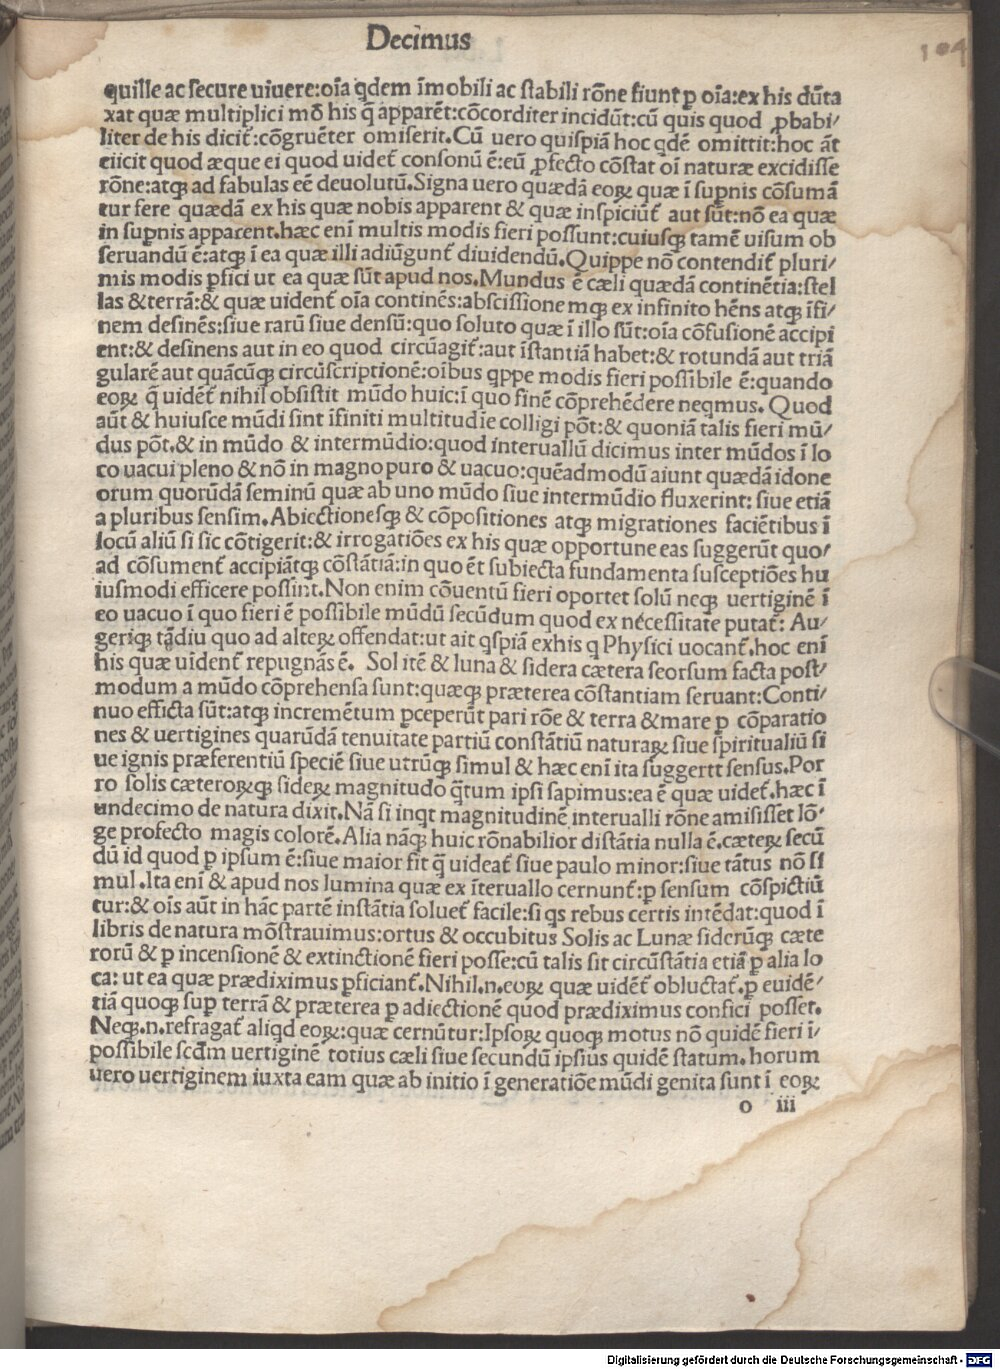 Decimus
104
quille ac secure uiuere:oīa q̄dem īmobili ac stabili rōne fiunt ꝑ oīa:ex his dūta
xat quæ multiplici mō his q̄ apparēt:cōcorditer incidūt:cū quis quod ꝓbabi/
liter de his dicit᷑:cōgruēter omiserit.Cū uero quispiā hoc qdē omittit:hoc āt
eiicit quod æque ei quod uidet᷑ consonū ē:eū ꝓfecto cōstat oī naturæ excidisse
rōne:atqꝫ ad fabulas eē deuolutū.Signa uero quædā eoꝝ quæ ī suꝑnis cōsumā
tur fere quædā ex his quæ nobis apparent & quæ inspiciūt᷑ aut sūt:nō ea quæ
in suꝑnis apparent.hæc enī multis modis fieri possunt:cuiusqꝫ tamē uisum ob
seruandū ē:atqꝫ ī ea quæ illi adiūgunt᷑ diuidendū.Quippe nō contendit᷑ pluri/
mis modis ꝑfici ut ea quæ sūt apud nos.Mundus ē cæli quædā continētia:stel
las & terrā:& quæ uident᷑ oīa continēs:abscissione mqꝫ ex infinito hēns atqꝫ īfi/
nem desinēs:siue rarū siue densū:quo soluto quæ ī illo sūt:oīa cōfusionē accipi
ent:& desinens aut in eo quod circūagit᷑:aut īstantiā habet:& rotundā aut triā
gularē aut quācūqꝫ circūscriptionē:oībus qppe modis fieri possibile ē:quando
eoꝝ q̄ uidēt᷑ nihil obsistit mūdo huic:ī quo finē cōprehēdere neqmus. Quod
aūt & huiusce mūdi sint īfiniti multitudie colligi pōt:& quoniā talis fieri mū/
dus pōt.& in mūdo & intermūdio:quod interuallū dicimus inter mūdos ī lo
co uacui pleno & nō in magno puro & uacuo:quēadmodū aiunt quædā idone
orum quorūdā seminū quæ ab uno mūdo siue intermūdio fluxerint: siue etiā
a pluribus sensim.Abiectionesqꝫ & cōpositiones atqꝫ migrationes faciētibus ī
locū aliū si sic cōtigerit:& irrogatiōes ex his quæ opportune eas suggerūt quo/
ad cōsument᷑ accipiātqꝫ cōstātiā:in quo ēt subiecta fundamenta susceptiōes hu
iusmodi efficere possint.Non enim cōuentū fieri oportet solū neqꝫ uertiginē ī
eo uacuo ī quo fieri ē possibile mūdū secūdum quod ex necessitate putat᷑: Au/
geriqꝫ tādiu quo ad alteꝝ offendat:ut ait qspiā exhis q Physici uocant᷑.hoc enī
his quæ uident᷑ repugnās ē. Sol itē & luna & sidera cætera seorsum facta post/
modum a mūdo cōprehensa sunt:quæqꝫ præterea cōstantiam seruant:Conti/
nuo efficta sūt:atqꝫ incremētum ꝑceperūt pari rōe & terra & mare ꝑ cōparatio
nes & uertigines quarūdā tenuitate partiū constātiū naturaꝝ siue spiritualiū si
ue ignis præferentiū speciē siue utrūqꝫ simul & hæc enī ita suggertt sensus.Por
ro solis cæteroꝝqꝫ sideꝝ magnitudo q̄tum ipsi sapimus:ea ē quæ uidet᷑.hæc ī
undecimo de natura dixit.Nā si inqt magnitudinē interualli rōne amisisset lō-
ge profecto magis colorē.Alia nāqꝫ huic rōnabilior distātia nulla ē.cæteꝝ secū
dū id quod ꝑ ipsum ē:siue maior sit q̄ uideat᷑ siue paulo minor:siue tātus nō si
mul.Ita enī & apud nos lumina quæ ex īteruallo cernunt᷑:ꝑ sensum cōspictiū
tur:& oīs aūt in hāc partē instātia soluet᷑ facile:si qs rebus certis intēdat:quod ī
libris de natura mōstrauimus:ortus & occubitus Solis ac Lunæ siderūqꝫ cæte
rorū & ꝑ incensionē & extinctionē fieri posse:cū talis sit circūstātia etiā ꝑ alia lo
ca: ut ea quæ prædiximus ꝑficiant᷑.Nihil.n.eoꝝ quæ uidēt᷑ obluctat᷑.ꝑ euidē/
tiā quoqꝫ suꝑ terrā & præterea ꝑ adiectionē quod prædiximus confici posset.
Neqꝫ.n.refragat᷑ aliqd eoꝝ:quæ cernūtur:Ipsoꝝ quoqꝫ motus nō quidē fieri ī/
possibile scdm uertiginē totius cæli siue secundū ipsius quidē statum.horum
uero uertiginem iuxta eam quæ ab initio ī generatiōe mūdi genita sunt ī eoꝝ
o iii
Digitalisierung gefördert durch die Deutsche Forschungsgemeinschaft - DFG